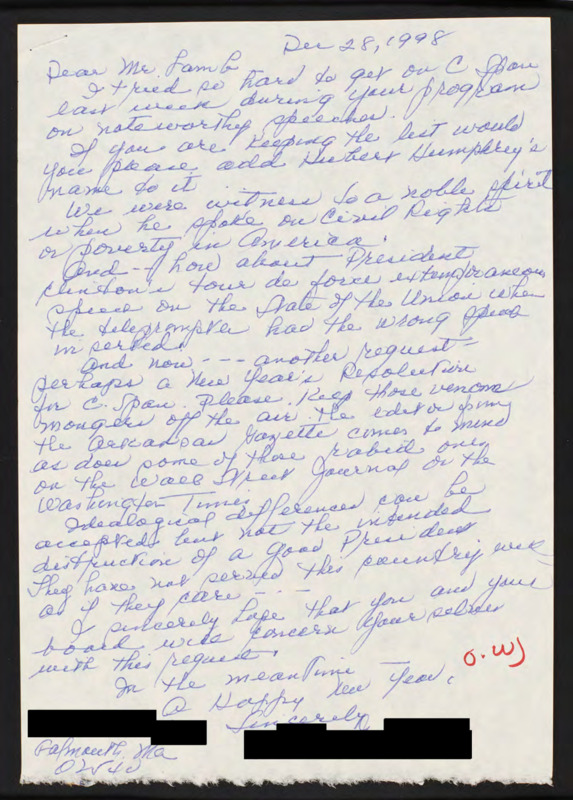 Dec 28, 1998
Dear Mr. Lamb
I tried so hard to get on C Span
last week during your program
on noteworthy speeches.
If you are keeping the list would
you please add Hubert Humphrey's
name to it
We were witness to a noble spirit
when he spoke on Civil Rights
or poverty in America.
And - - how about President
Clinton's tour de force extemporaneous
speech on the State of the Union when
the teleprompter had the wrong speech
inserted.
And now - - - another request -
perhaps a New Year's Resolution
for C. Span. Please. Keep those venom
mongers off the air. The editor from
the Arkansas Gazette comes to mind
as does some of those rabid ones
on the Wall Street Journal or the
Washington Times
Idealogical differences can be
accepted but not the intended
distruction of a good President
They have not served this country well
as if they care - - -
I sincerely hope that you and your
board will concern yourselves
with this request.
In the meantime
A Happy New Year.
O.W)
Sincerely
Falmouth, Ma
02540